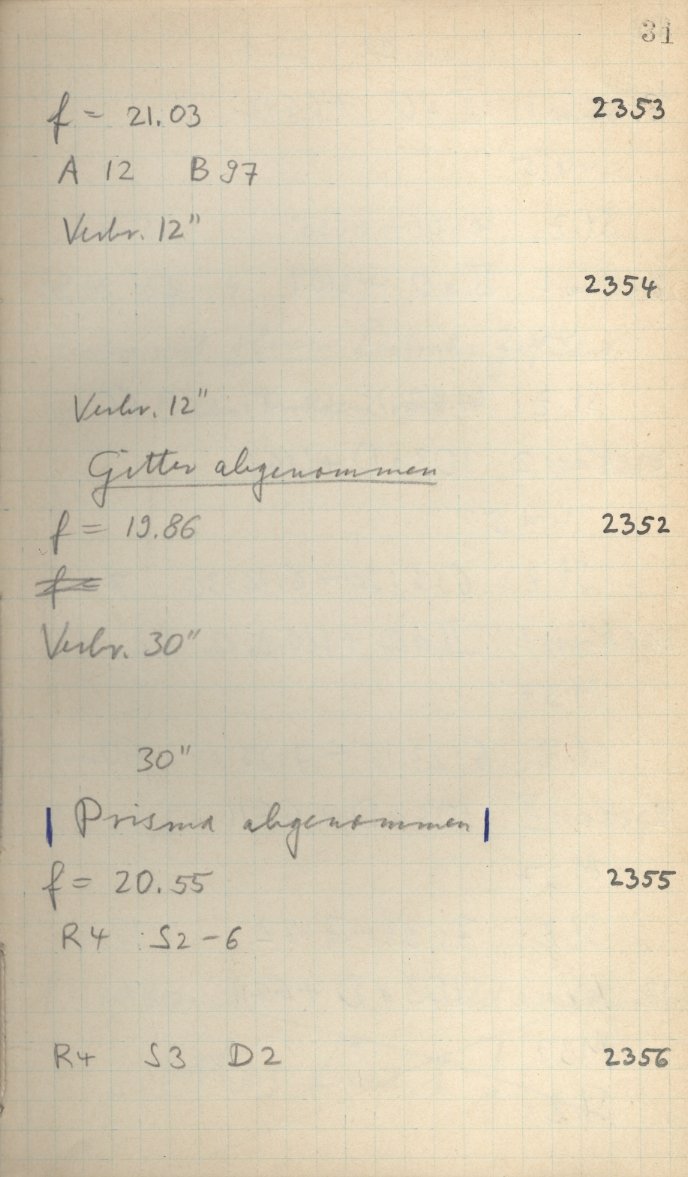 31
f = 21.03 2353
A 12 B 97
Verbr. 12"
2354
Verbr. 12"
Gitter abgenommen
f = 19.86 2352
f =
Verbr. 30"
30"
| Prisma abgenommen |
f = 20.55 2355
R4 S2-6
R4 S3 D2 2356